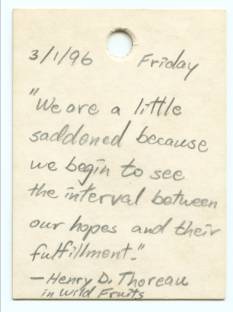 3/1/96 Friday
"We are a little
saddened because
we begin to see
the interval between
our hopes and their
fulfillment."
— Henry D. Thoreau
in Wild Fruits